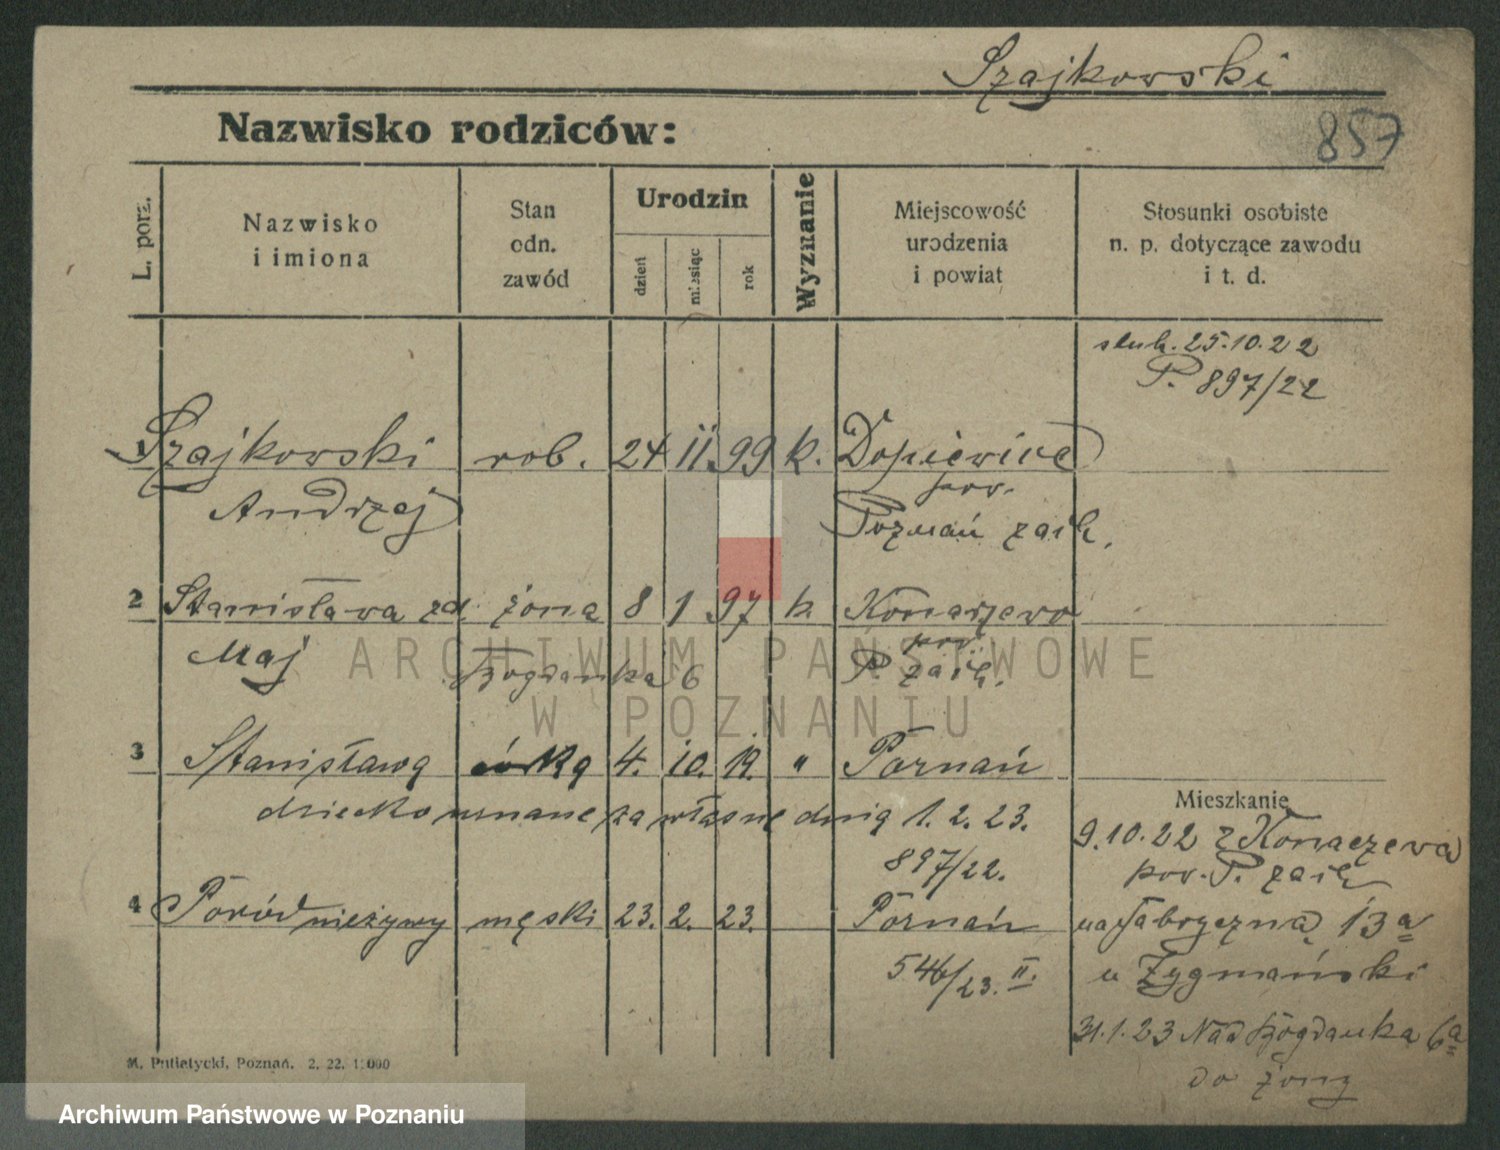 Szajkowski
857
Nazwisko rodziców:
L. porz.
Nazwisko
i imiona
Stan
odn.
zawód
Urodzin
dzień
miesiąc
rok
Wyznanie
Miejscowość
urodzenia
i powiat
Stosunki osobiste
n. p. dotyczące zawodu
i t. d.
slub. 25.10.22
P. 897/22
1 Szajkowski rob. 24 11. 99 k. Dopiewice
pow.
Andrzej Poznań zach.
2 Stanisława zd. żona 8 1 97 k. Konarzewo
pow.
Maj Bogdanka 6 P. zach.
3 Stanisława córka 4. 10. 19. " Poznań
dziecko uznane za własne dnia 1. 2. 23.
897/22.
4 Poród nieżywy męski 23. 2. 23. Poznań
546/23. II.
Mieszkanie
9.10.22 z Konarzewa
pow. P. zach
na Fabryczną 13a
u Zygmański
31.1.23 Nad Bogdanka 6a
do żony
M. Putiatycki, Poznań. 2. 22. 1000
ARCHIWUM PAŃSTWOWE
W POZNANIU
Archiwum Państwowe w Poznaniu